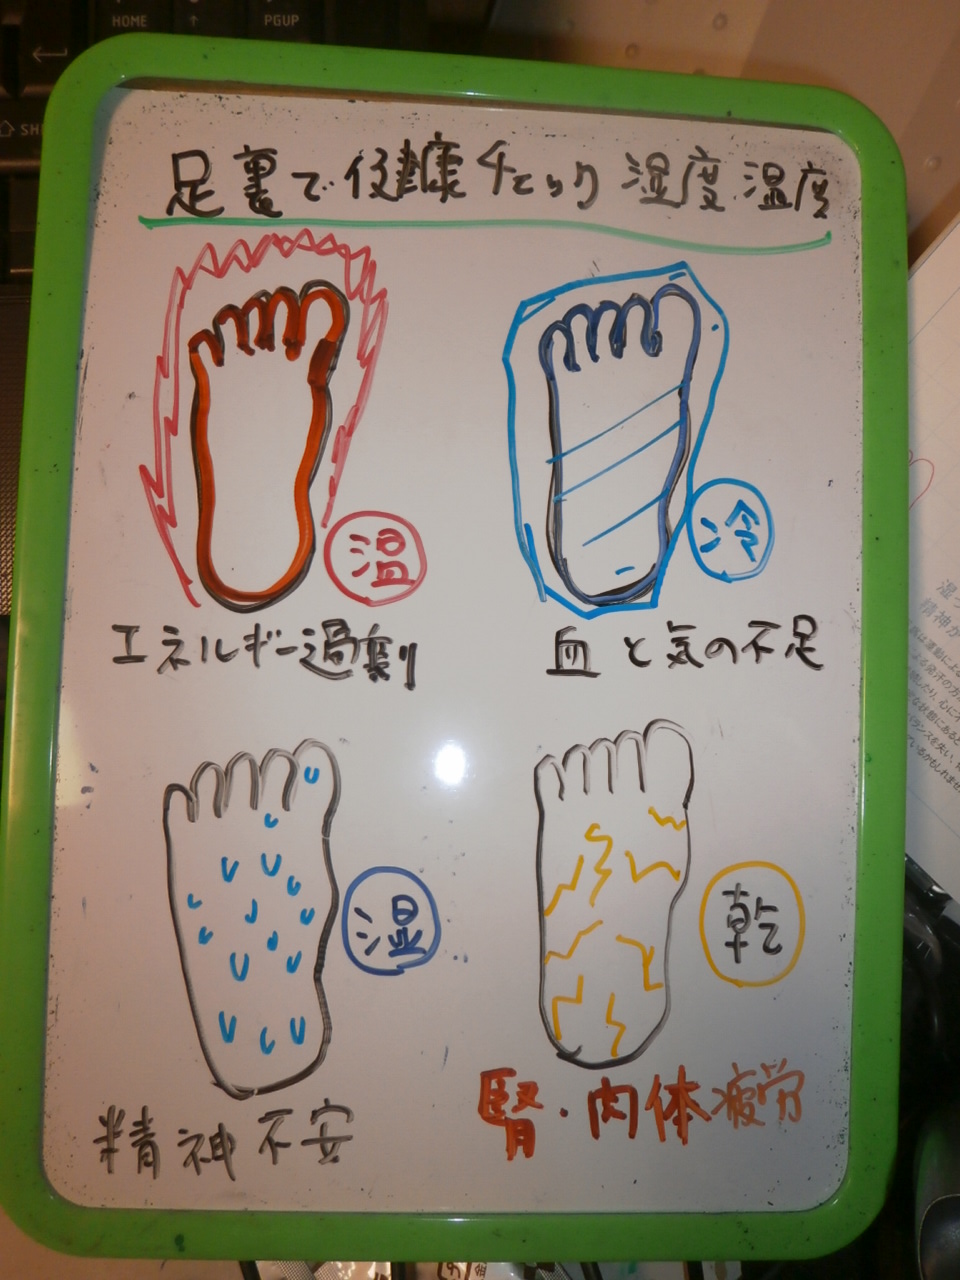 HOME
PGUP
足裏で健康チェック 湿度 温度
温
冷
エネルギー過剰
血と気の不足
湿
乾
精神不安
腎・肉体疲労